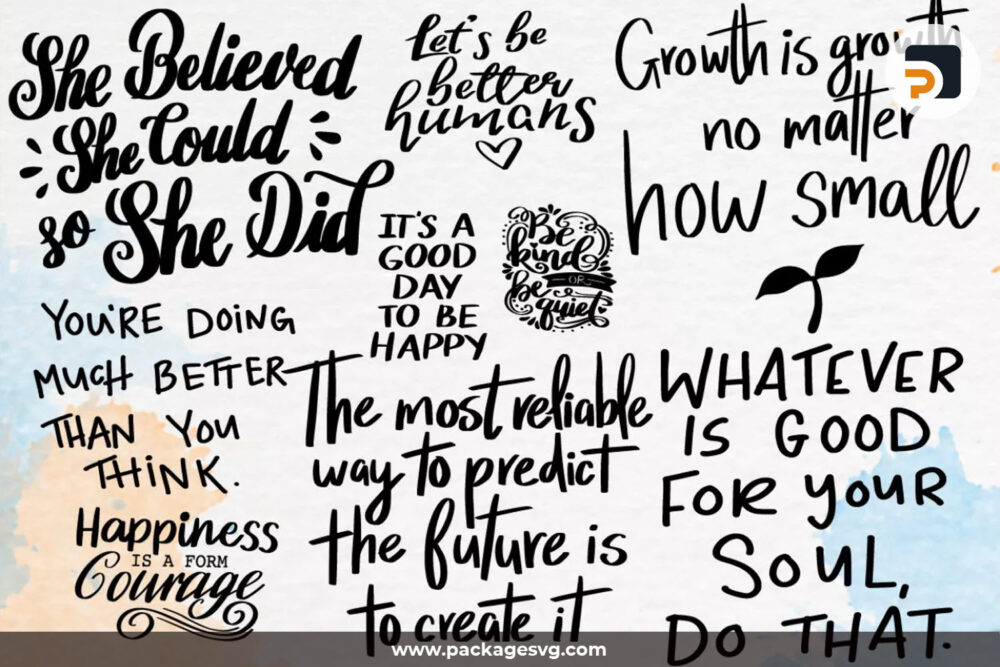 She Believed
She Could
so She Did
Let's be
better
humans
Growth is growth
no matter
how small
IT'S A
GOOD
DAY
TO BE
HAPPY
Be
kind
OR
be
quiet
YOU'RE DOING
MUCH BETTER
THAN YOU
THINK.
The most reliable
way to predict
the future is
to create it
WHATEVER
IS GOOD
FOR YOUR
SOUL,
DO THAT.
Happiness
IS A FORM
Courage
www.packagesvg.com